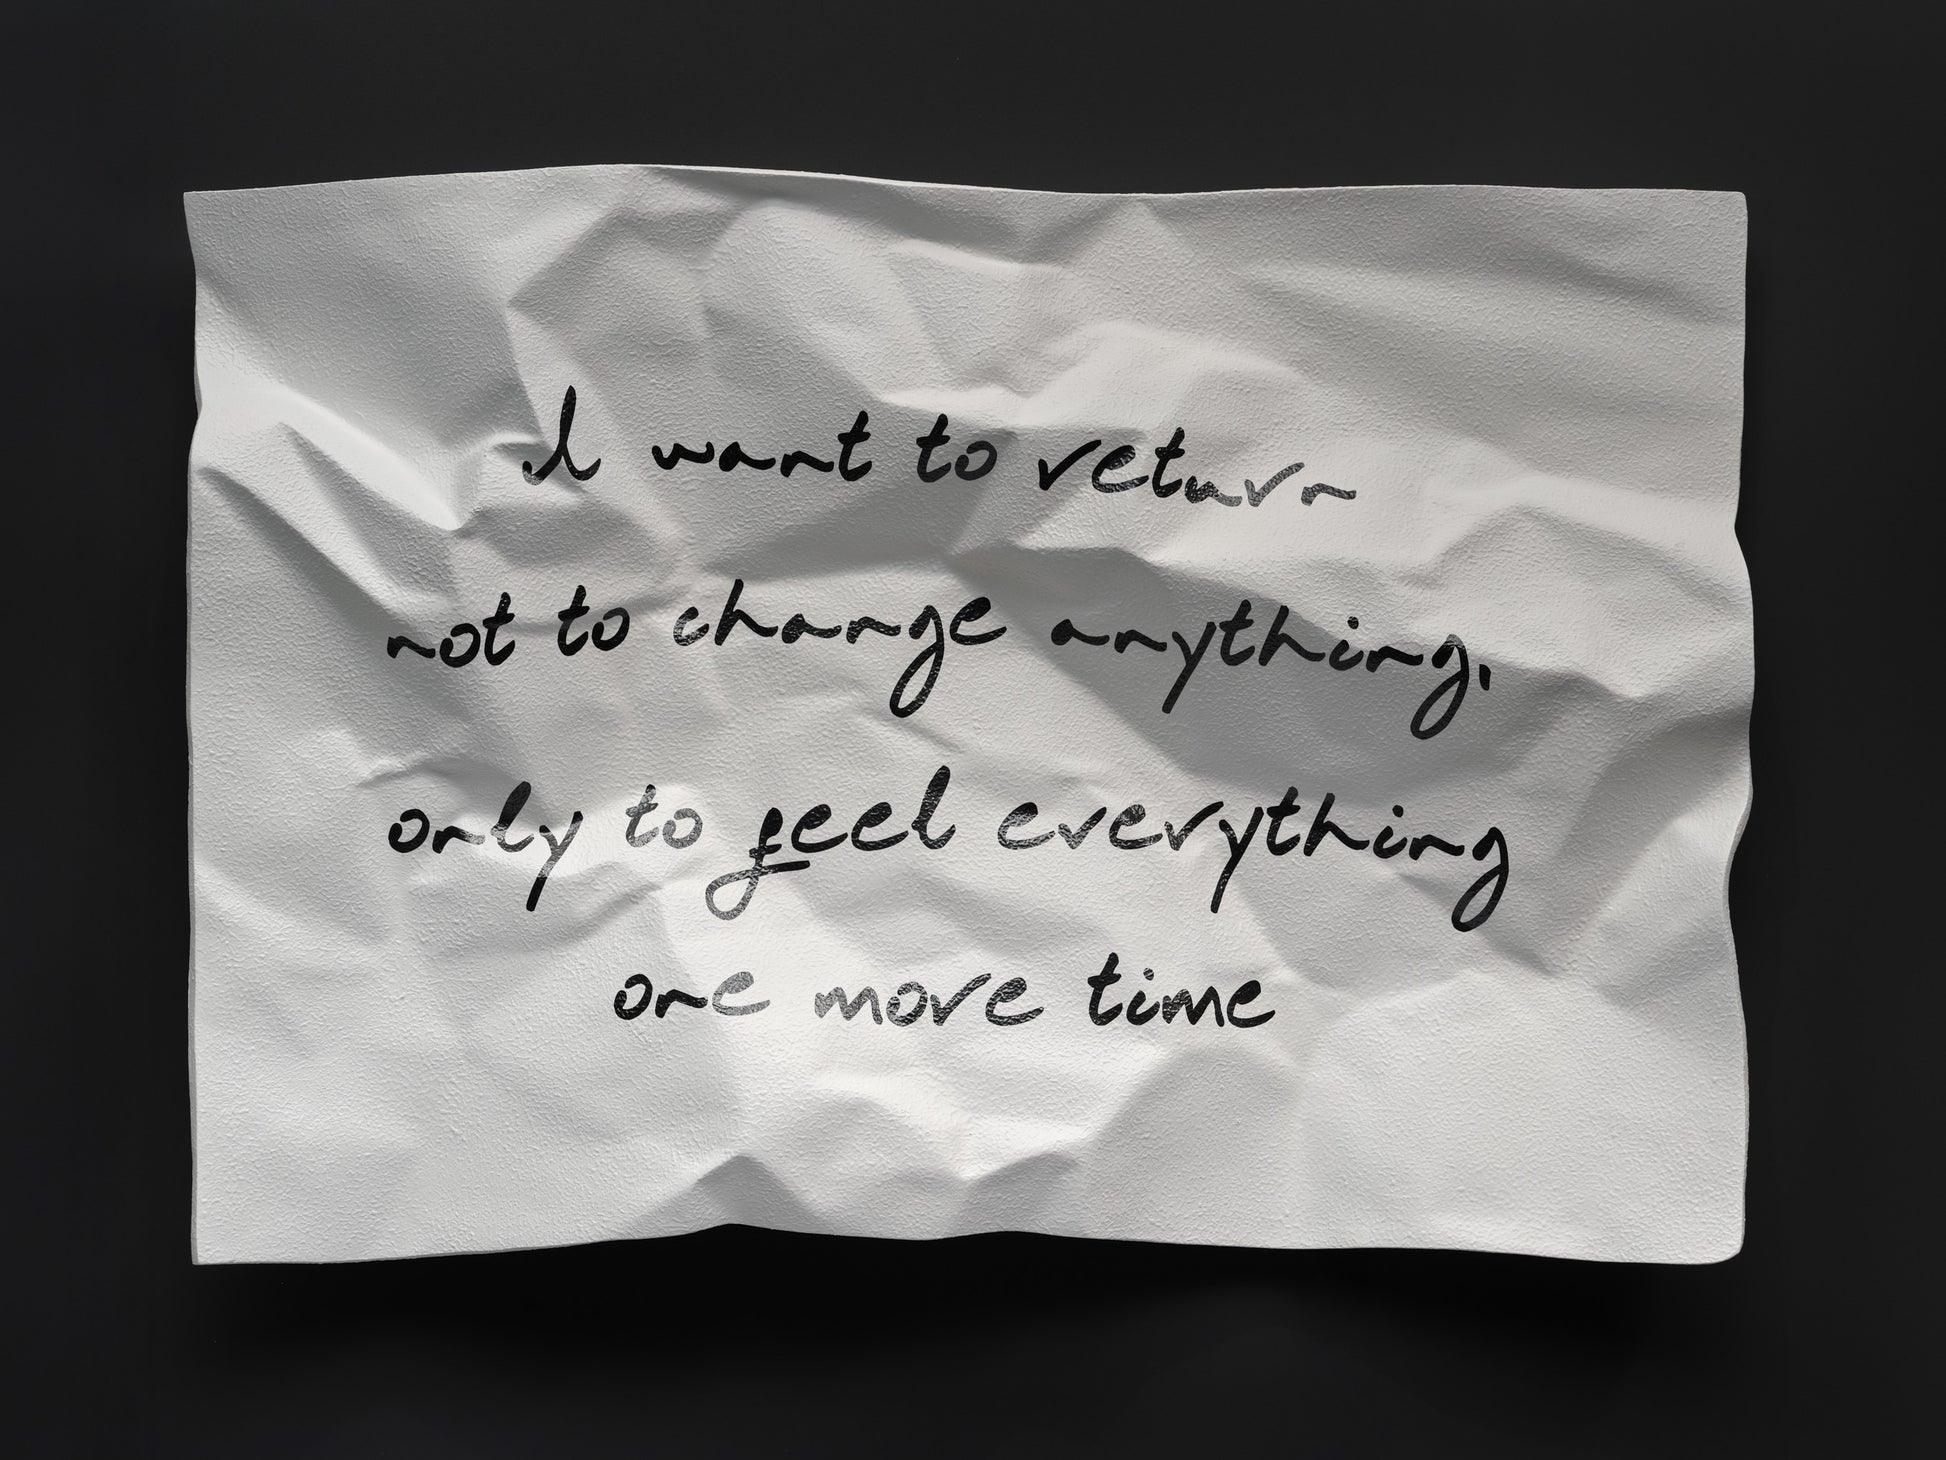 I want to return
not to change anything,
only to feel everything
one more time